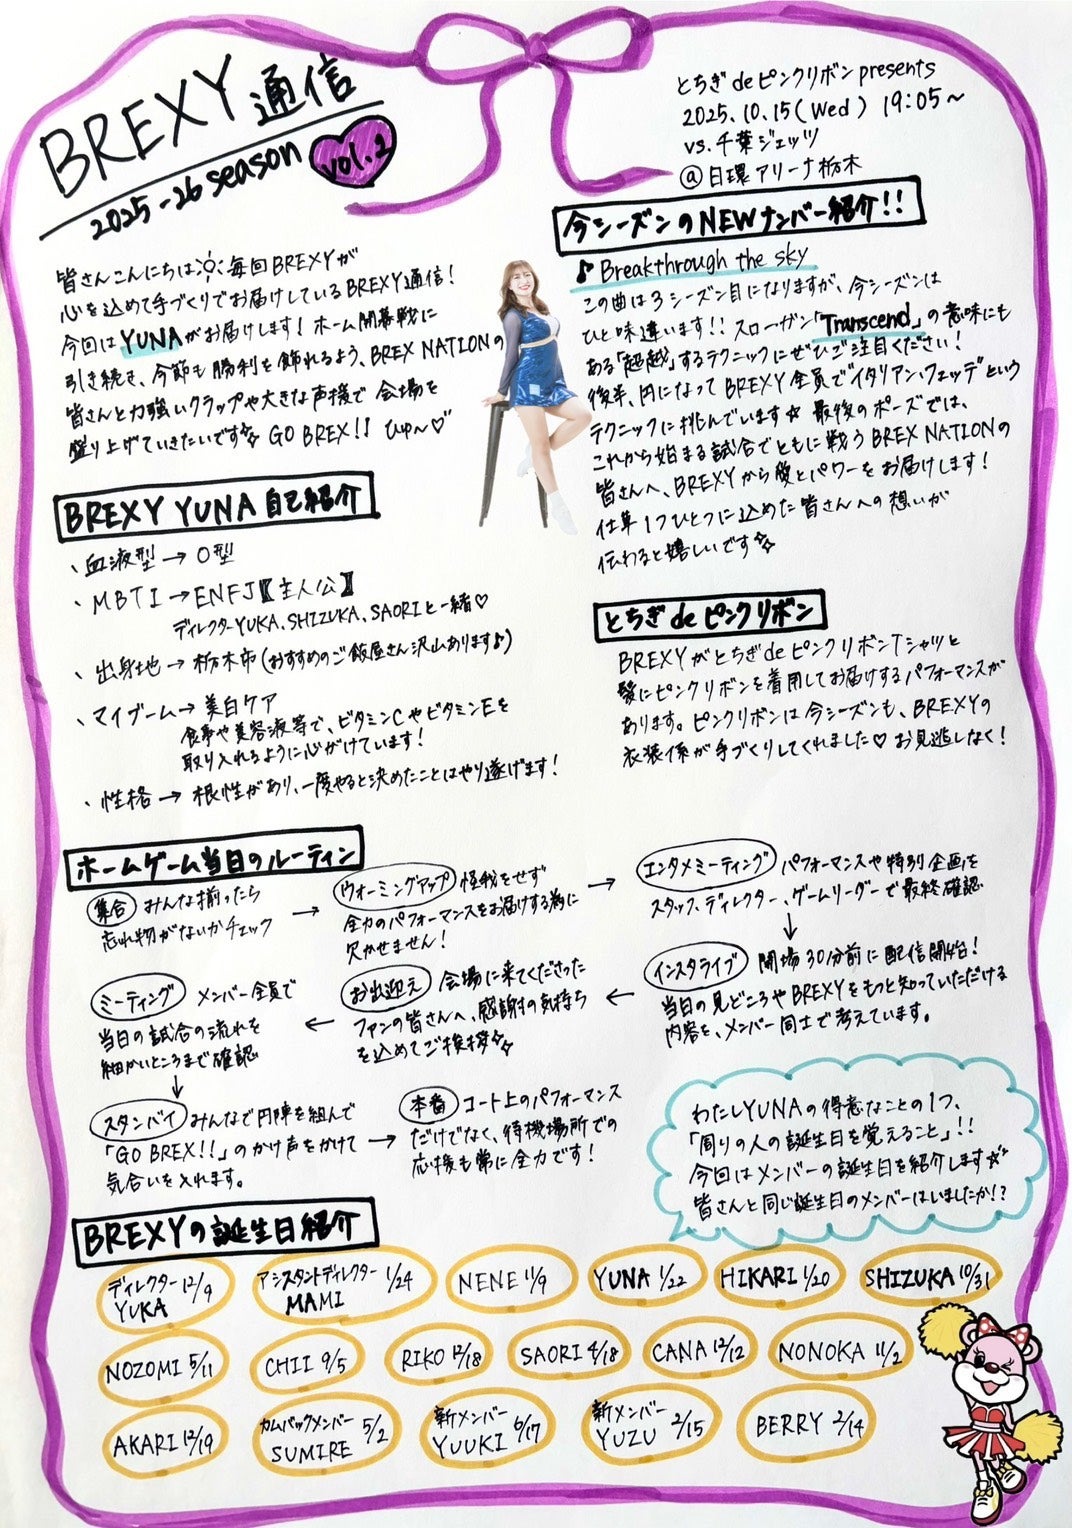 BREXY通信
2025-26 season
vol.2
とちぎdeピンクリボン presents
2025.10.15(Wed) 19:05～
vs.千葉ジェッツ
@日環アリーナ栃木
皆さんこんにちは 毎回BREXYが
心を込めて手づくりでお届けしているBREXY通信!
今回はYUNAがお届けします! ホーム開幕戦に
引き続き、今節も勝利を飾れるよう、BREX NATIONの
皆さんと力強いクラップや大きな声援で 会場を
盛り上げていきたいです☆ GO BREX!! ひゅ〜♡
BREXY YUNA 自己紹介
、血液型→O型
、MBTI→ENFJ【主人公】
ディレクターYUKA、SHIZUKA、SAORIと一緒♡
、出身地→栃木市(おすすめのご飯屋さん沢山あります♪)
、マイブーム→美白ケア
食事や美容液等で、ビタミンCやビタミンEを
取り入れるように心がけています!
、性格→根性があり、一度やると決めたことはやり遂げます!
今シーズンのNEWナンバー紹介!!
♪ Breakthrough the sky
この曲は3シーズン目になりますが、今シーズンは
ひと味違います!! スローガン「Transcend」の意味にも
ある「超越」するテクニックにぜひご注目ください!
後半、円になってBREXY全員で"イタリアンフェッテ"という
テクニックに挑んでいます☆ 最後のポーズでは、
これから始まる試合でともに戦うBREX NATIONの
皆さんへ、BREXYから愛とパワーをお届けします!
仕草1つひとつに込めた皆さんへの想いが
伝わると嬉しいです☆
とちぎdeピンクリボン
BREXYがとちぎdeピンクリボンTシャツと
髪にピンクリボンを着用してお届けするパフォーマンスが
あります。ピンクリボンは今シーズンも、BREXYの
衣装係が手づくりしてくれました♡ お見逃しなく!
ホームゲーム当日のルーティン
集合 みんな揃ったら
忘れ物がないかチェック
→
ウォーミングアップ 怪我をせず
全力のパフォーマンスをお届けする為に
欠かせません!
→
エンタメミーティング パフォーマンスや特別企画を
スタッフ、ディレクター、ゲームリーダーで最終確認
↓
インスタライブ 開場30分前に配信開始!
当日の見どころやBREXYをもっと知っていただける
内容を、メンバー同士で考えています。
←
お出迎え 会場に来てくださった
ファンの皆さんへ、感謝の気持ち
を込めてご挨拶☆
←
ミーティング メンバー全員で
当日の試合の流れを
細かいところまで確認
↓
スタンバイ みんなで円陣を組んで
「GO BREX!!」のかけ声をかけて
気合いを入れます。
→
本番 コート上のパフォーマンス
だけでなく、待機場所での
応援も常に全力です!
わたしYUNAの得意なことの1つ、
「周りの人の誕生日を覚えること」!!
今回はメンバーの誕生日を紹介します☆
皆さんと同じ誕生日のメンバーはいましたか!?
BREXYの誕生日紹介
ディレクター 12/9
YUKA
アシスタントディレクター 1/24
MAMI
NENE 11/9
YUNA 1/22
HIKARI 1/20
SHIZUKA 10/31
NOZOMI 5/11
CHII 9/5
RIKO 12/18
SAORI 4/18
CANA 12/12
NONOKA 11/2
AKARI 12/19
カムバックメンバー 5/2
SUMIRE
新メンバー 6/17
YUUKI
新メンバー 2/15
YUZU
BERRY 2/14